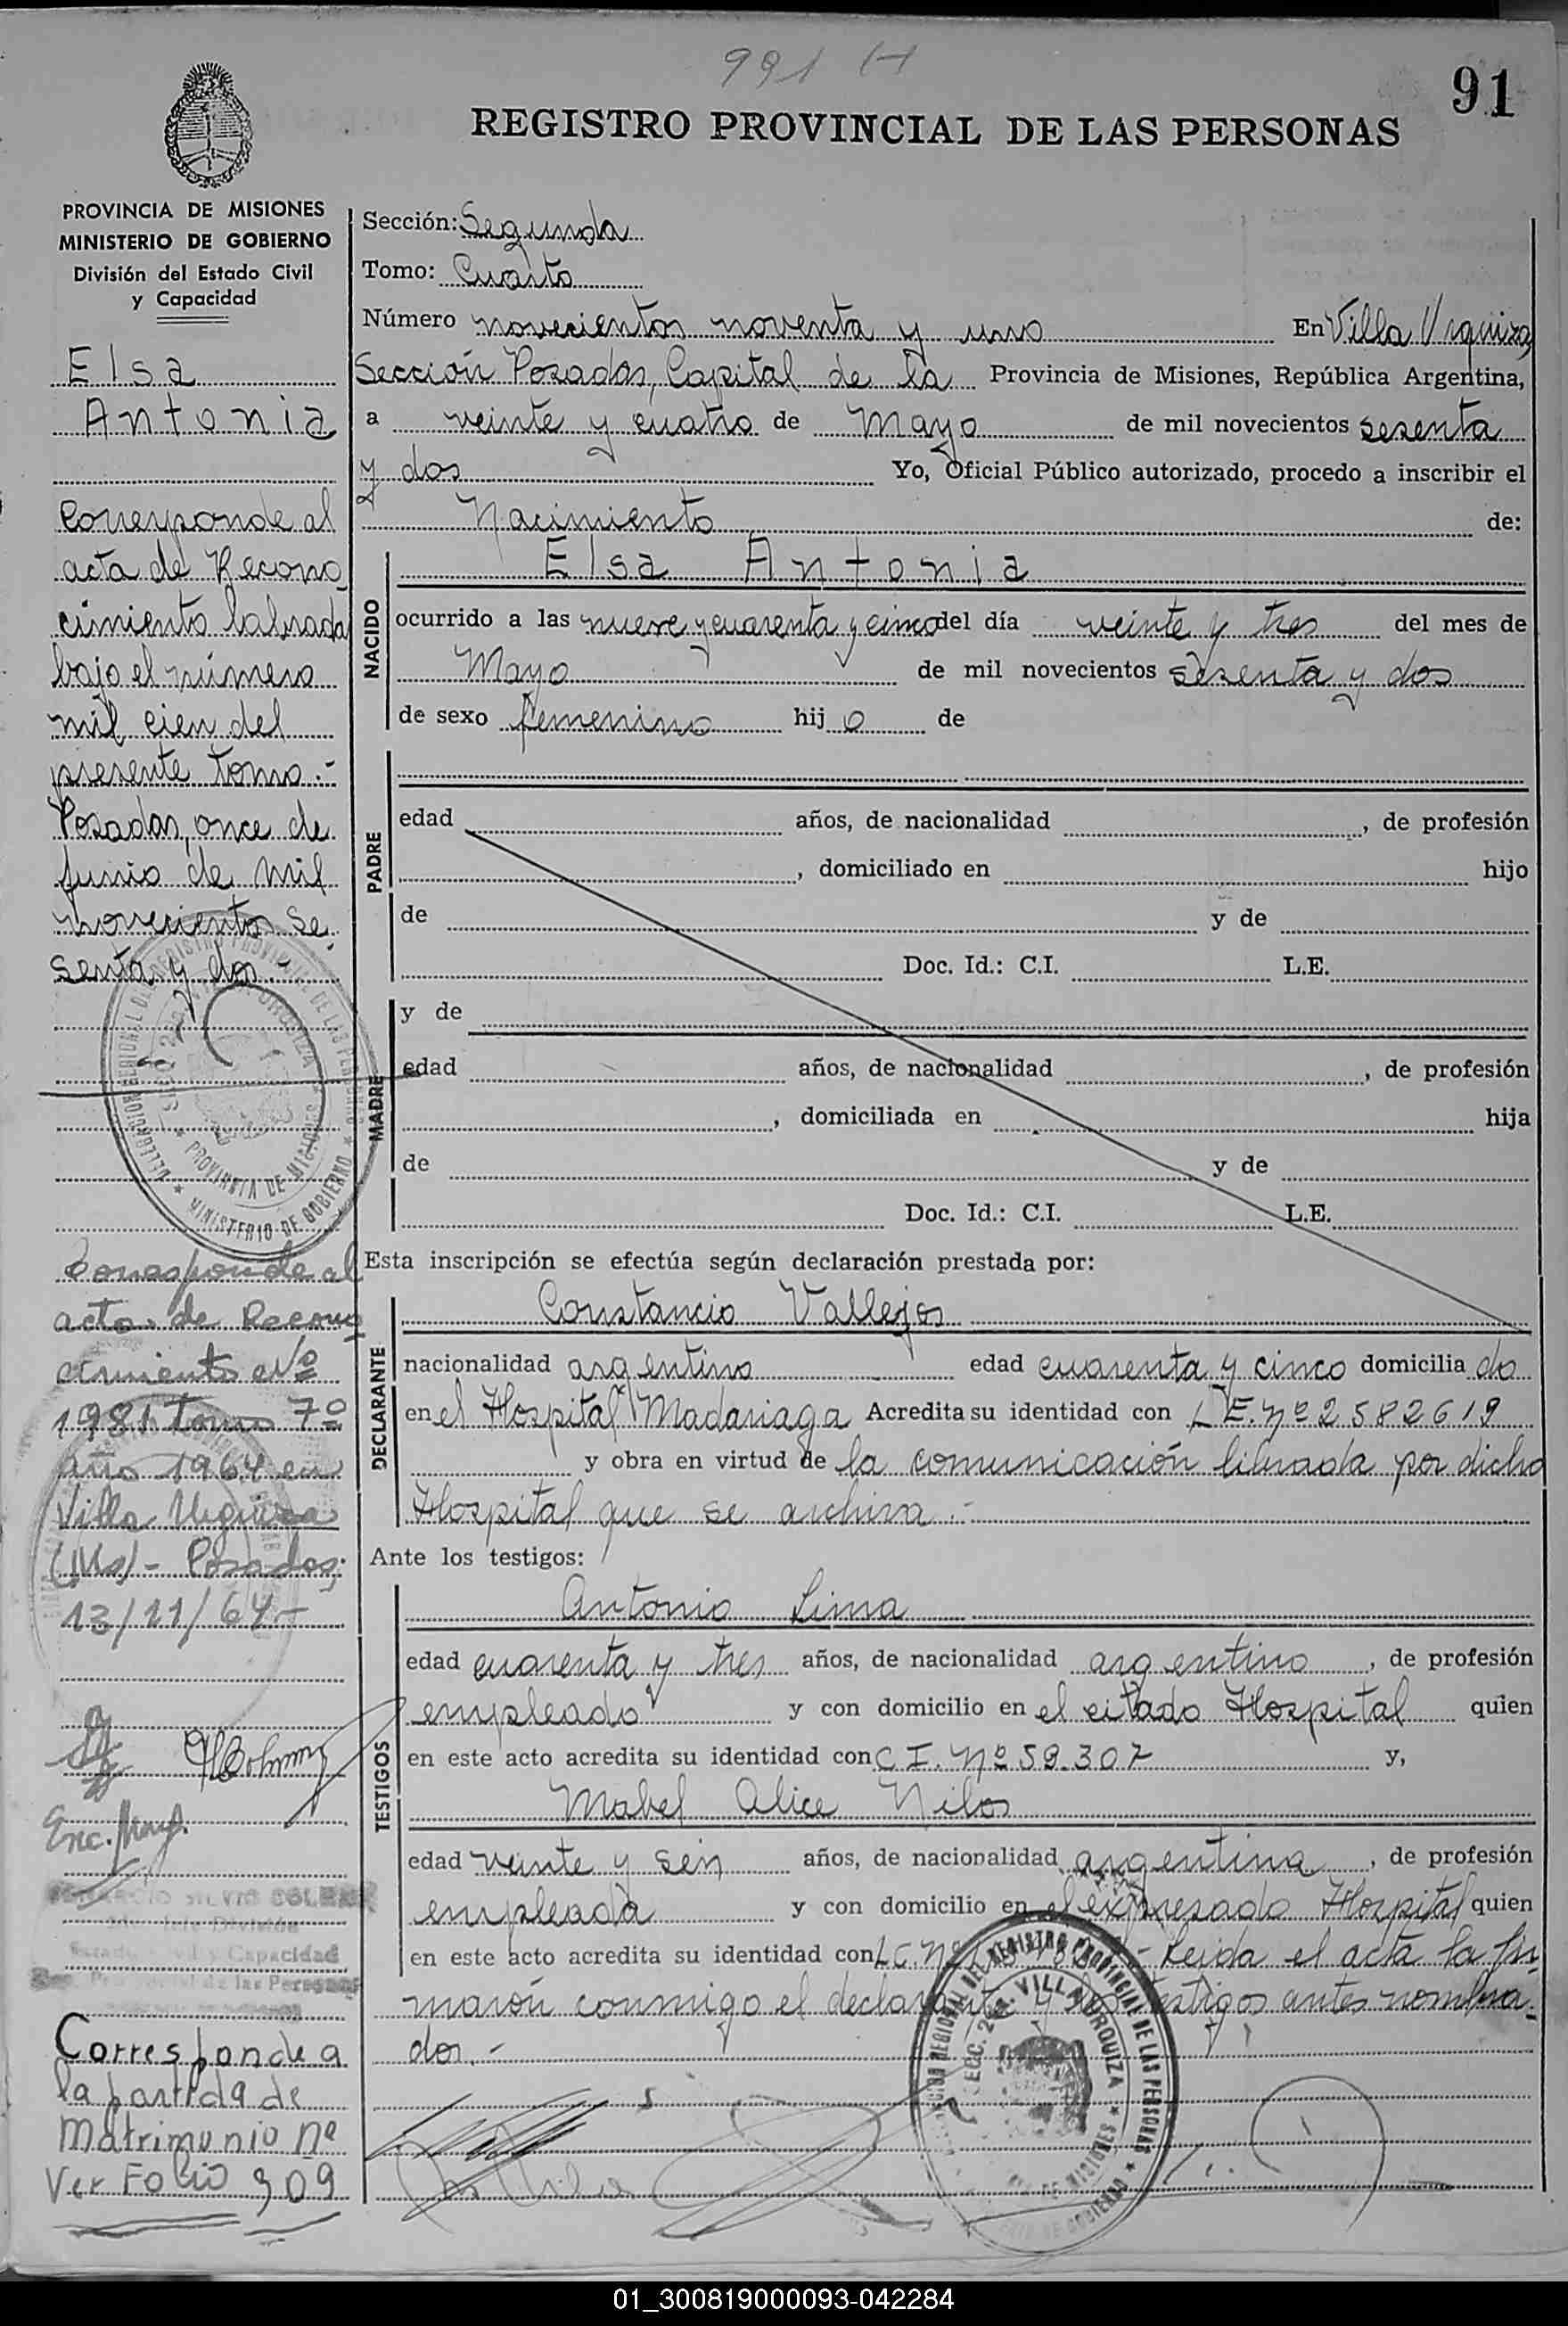 991 H
91
REGISTRO PROVINCIAL DE LAS PERSONAS
PROVINCIA DE MISIONES
MINISTERIO DE GOBIERNO
División del Estado Civil
y Capacidad
Elsa
Antonia
Corresponde al
acta de Recono
cimiento labrada
bajo el número
mil cien del
presente tomo.-
Posadas, once de
junio de mil
novecientos se-
senta y dos.-
Corresponde al
acta de Recono
cimiento Nº
1981 tomo 7º
año 1964 en
Villa Urquiza
(Ms)- Posadas,
13/11/64-
Enc.
Estado Civil y Capacidad
Corresponde a
la partida de
Matrimonio nº
Ver Folio 309
Sección: Segunda
Tomo: Cuarto
Número novecientos noventa y uno En Villa Urquiza,
Sección Posadas, Capital de la Provincia de Misiones, República Argentina,
a veinte y cuatro de Mayo de mil novecientos sesenta
y dos Yo, Oficial Público autorizado, procedo a inscribir el
Nacimiento de:
NACIDO
Elsa Antonia
ocurrido a las nueve y cuarenta y cinco del día veinte y tres del mes de
Mayo de mil novecientos sesenta y dos
de sexo femenino hij o de
PADRE
edad años, de nacionalidad , de profesión
, domiciliado en hijo
de y de
Doc. Id.: C.I. L.E.
MADRE
y de
edad años, de nacionalidad , de profesión
, domiciliada en hija
de y de
Doc. Id.: C.I. L.E.
Esta inscripción se efectúa según declaración prestada por:
DECLARANTE
Constancio Vallejos
nacionalidad argentino edad cuarenta y cinco domicilia do
en el Hospital Madariaga Acredita su identidad con L E. Nº 2582619
y obra en virtud de la comunicación librada por dicho
Hospital que se archiva.-
Ante los testigos:
TESTIGOS
Antonio Lima
edad cuarenta y tres años, de nacionalidad argentino , de profesión
empleado y con domicilio en el citado Hospital quien
en este acto acredita su identidad con C I. Nº 59.307 y,
Mabel Alice Nilos
edad veinte y seis años, de nacionalidad argentina , de profesión
empleada y con domicilio en el expresado Hospital quien
en este acto acredita su identidad con LC Nº - Leida el acta la fir-
maron conmigo el declarante y los testigos antes nombra-
dos.-
DELEGACION REGIONAL DEL REGISTRO PROVINCIAL DE LAS PERSONAS
SECC. 2da. VILLA URQUIZA
PROVINCIA DE MISIONES
MINISTERIO DE GOBIERNO
01_300819000093-042284